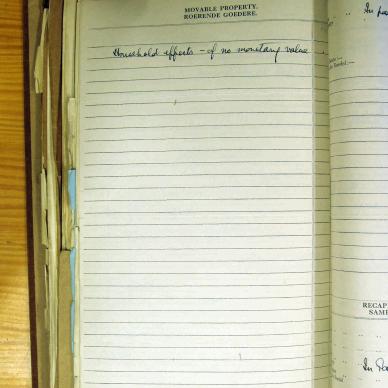 MOVABLE PROPERTY.
ROERENDE GOEDERE.
Household effects — of no monetary value
In
RECAP
SAME
In